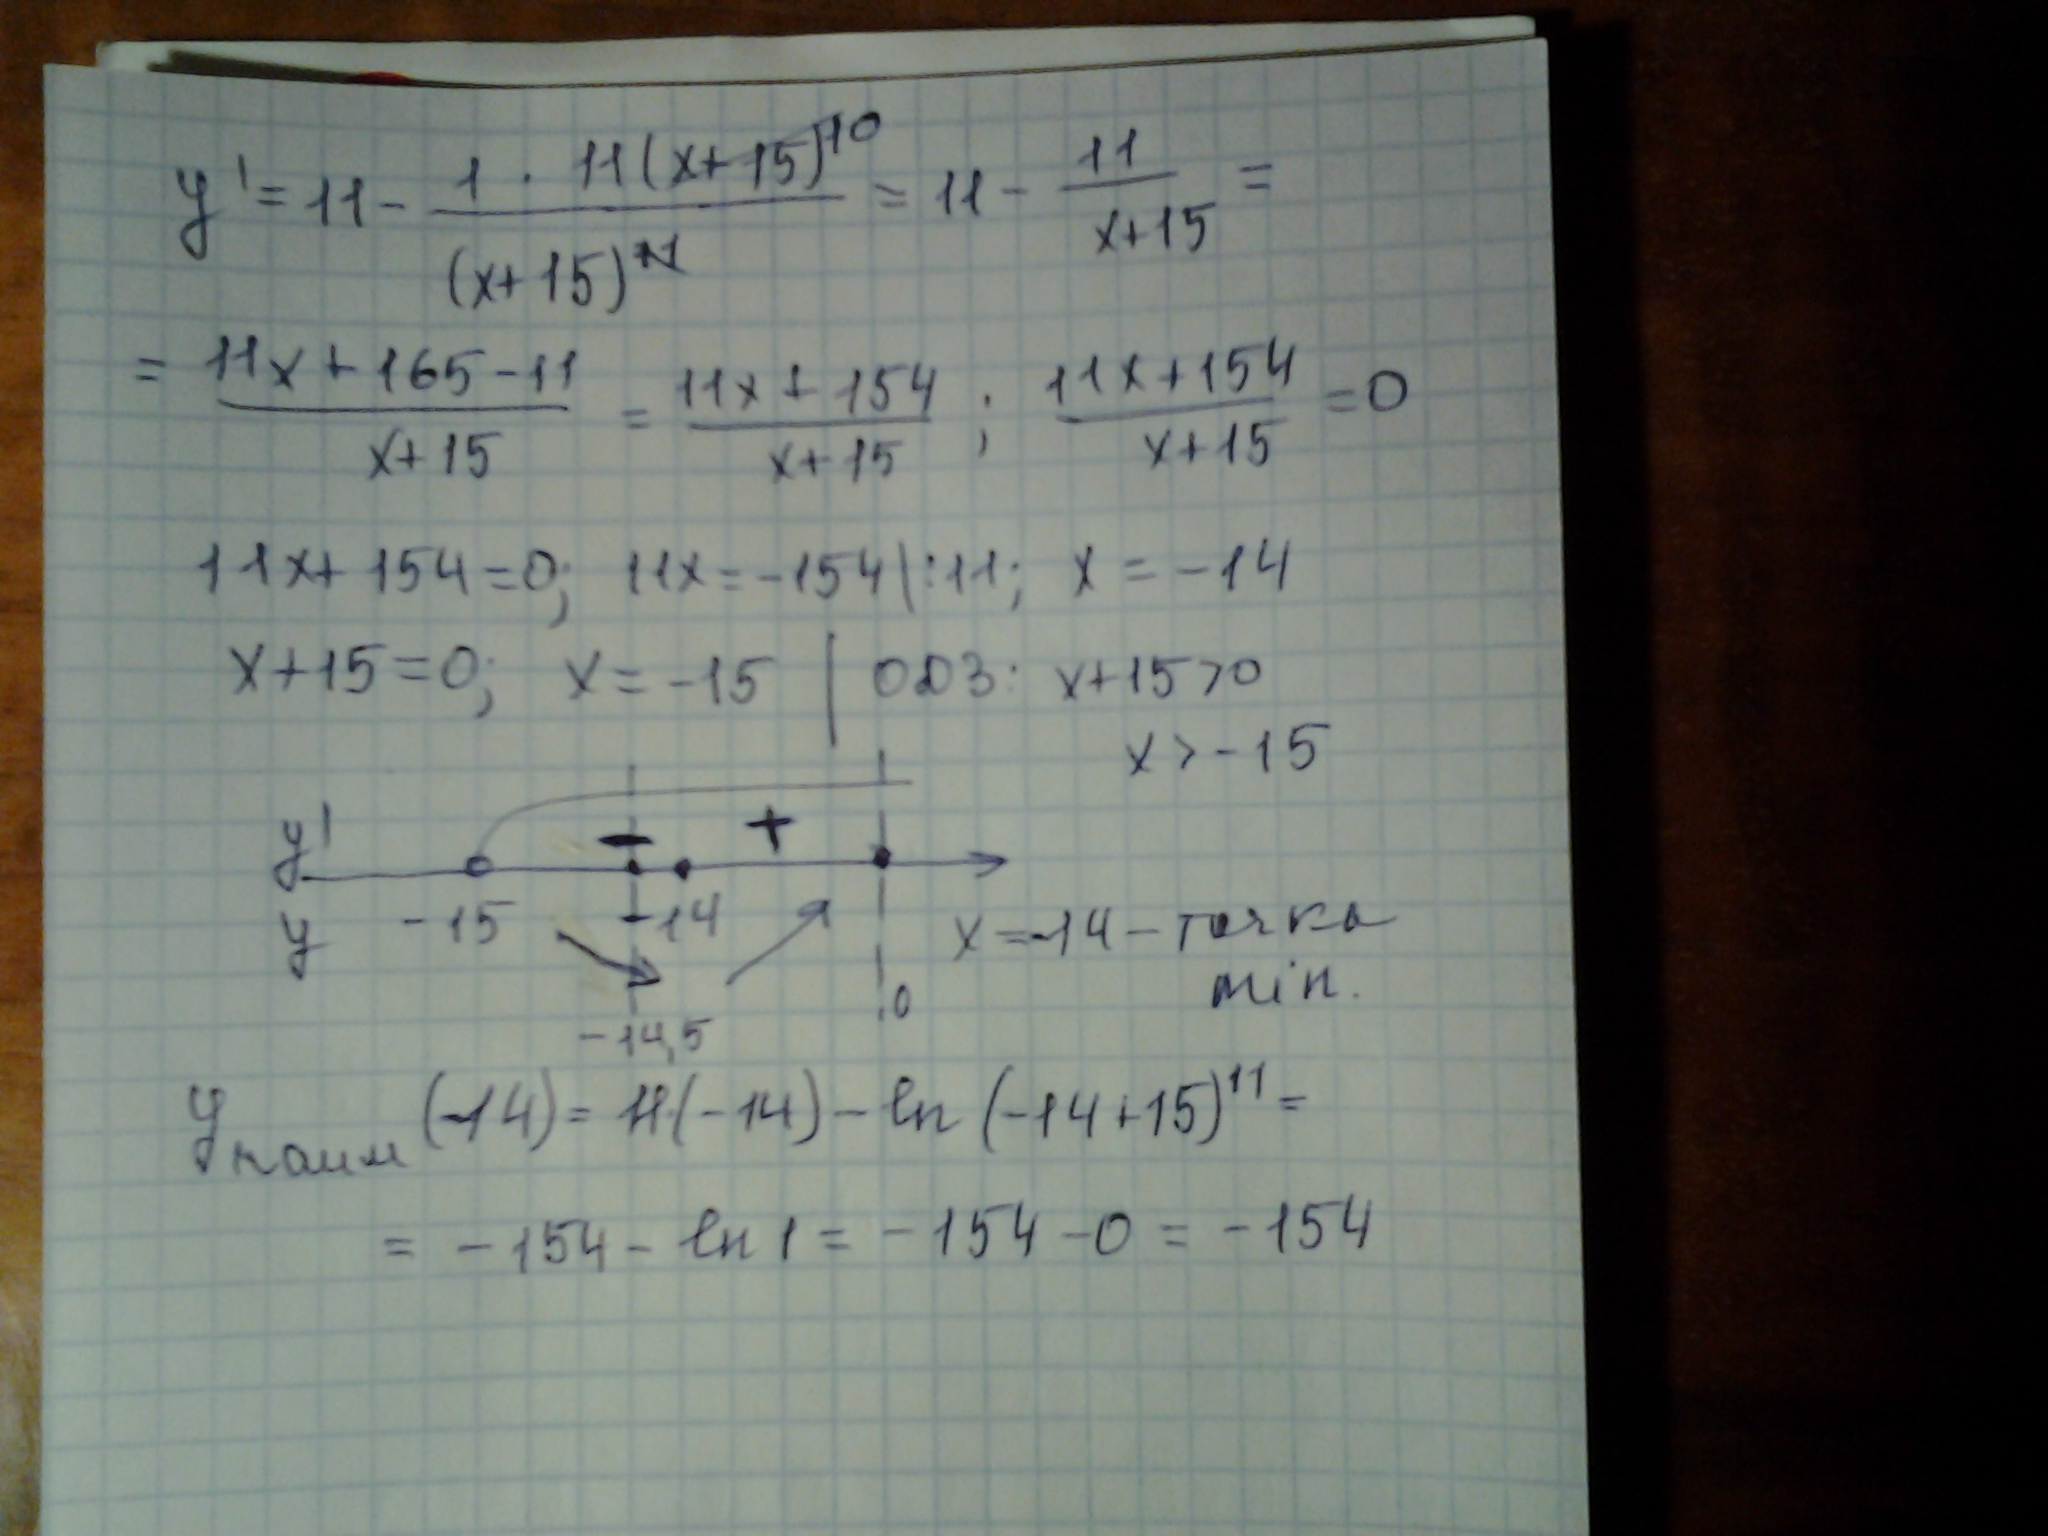 y' = 11 - (1 · 11(x+15)^10)/((x+15)^11) = 11 - 11/(x+15) =
= (11x + 165 - 11)/(x+15) = (11x + 154)/(x+15) ; (11x + 154)/(x+15) = 0
11x + 154 = 0; 11x = -154 |:11; x = -14
x + 15 = 0; x = -15 | ОДЗ: x+15 > 0
x > -15
y' - +
y -15 -14 x = -14 - точка
min.
-14,5 0
y наим (-14) = 11·(-14) - ln (-14+15)^11 =
= -154 - ln 1 = -154 - 0 = -154